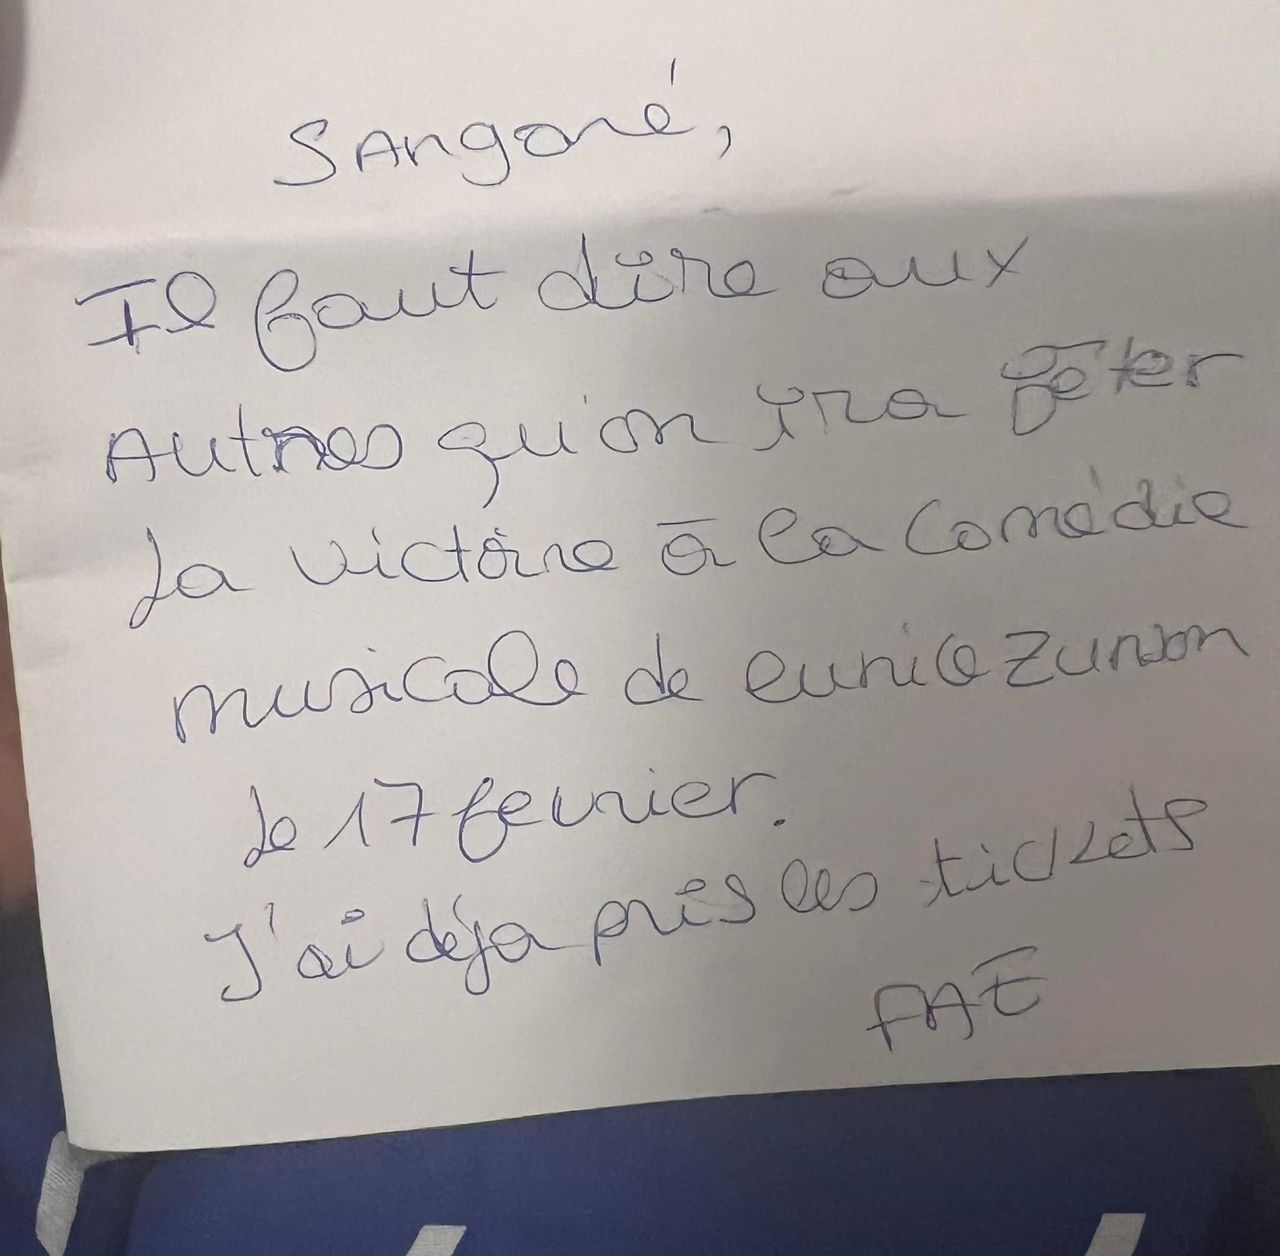 Sangaré,
Il faut dire aux
Autres qu'on ira fêter
La victoire à la Comédie
musicale de eunice Zunon
Le 17 fevrier.
J'ai déja pris les tickets
FAE